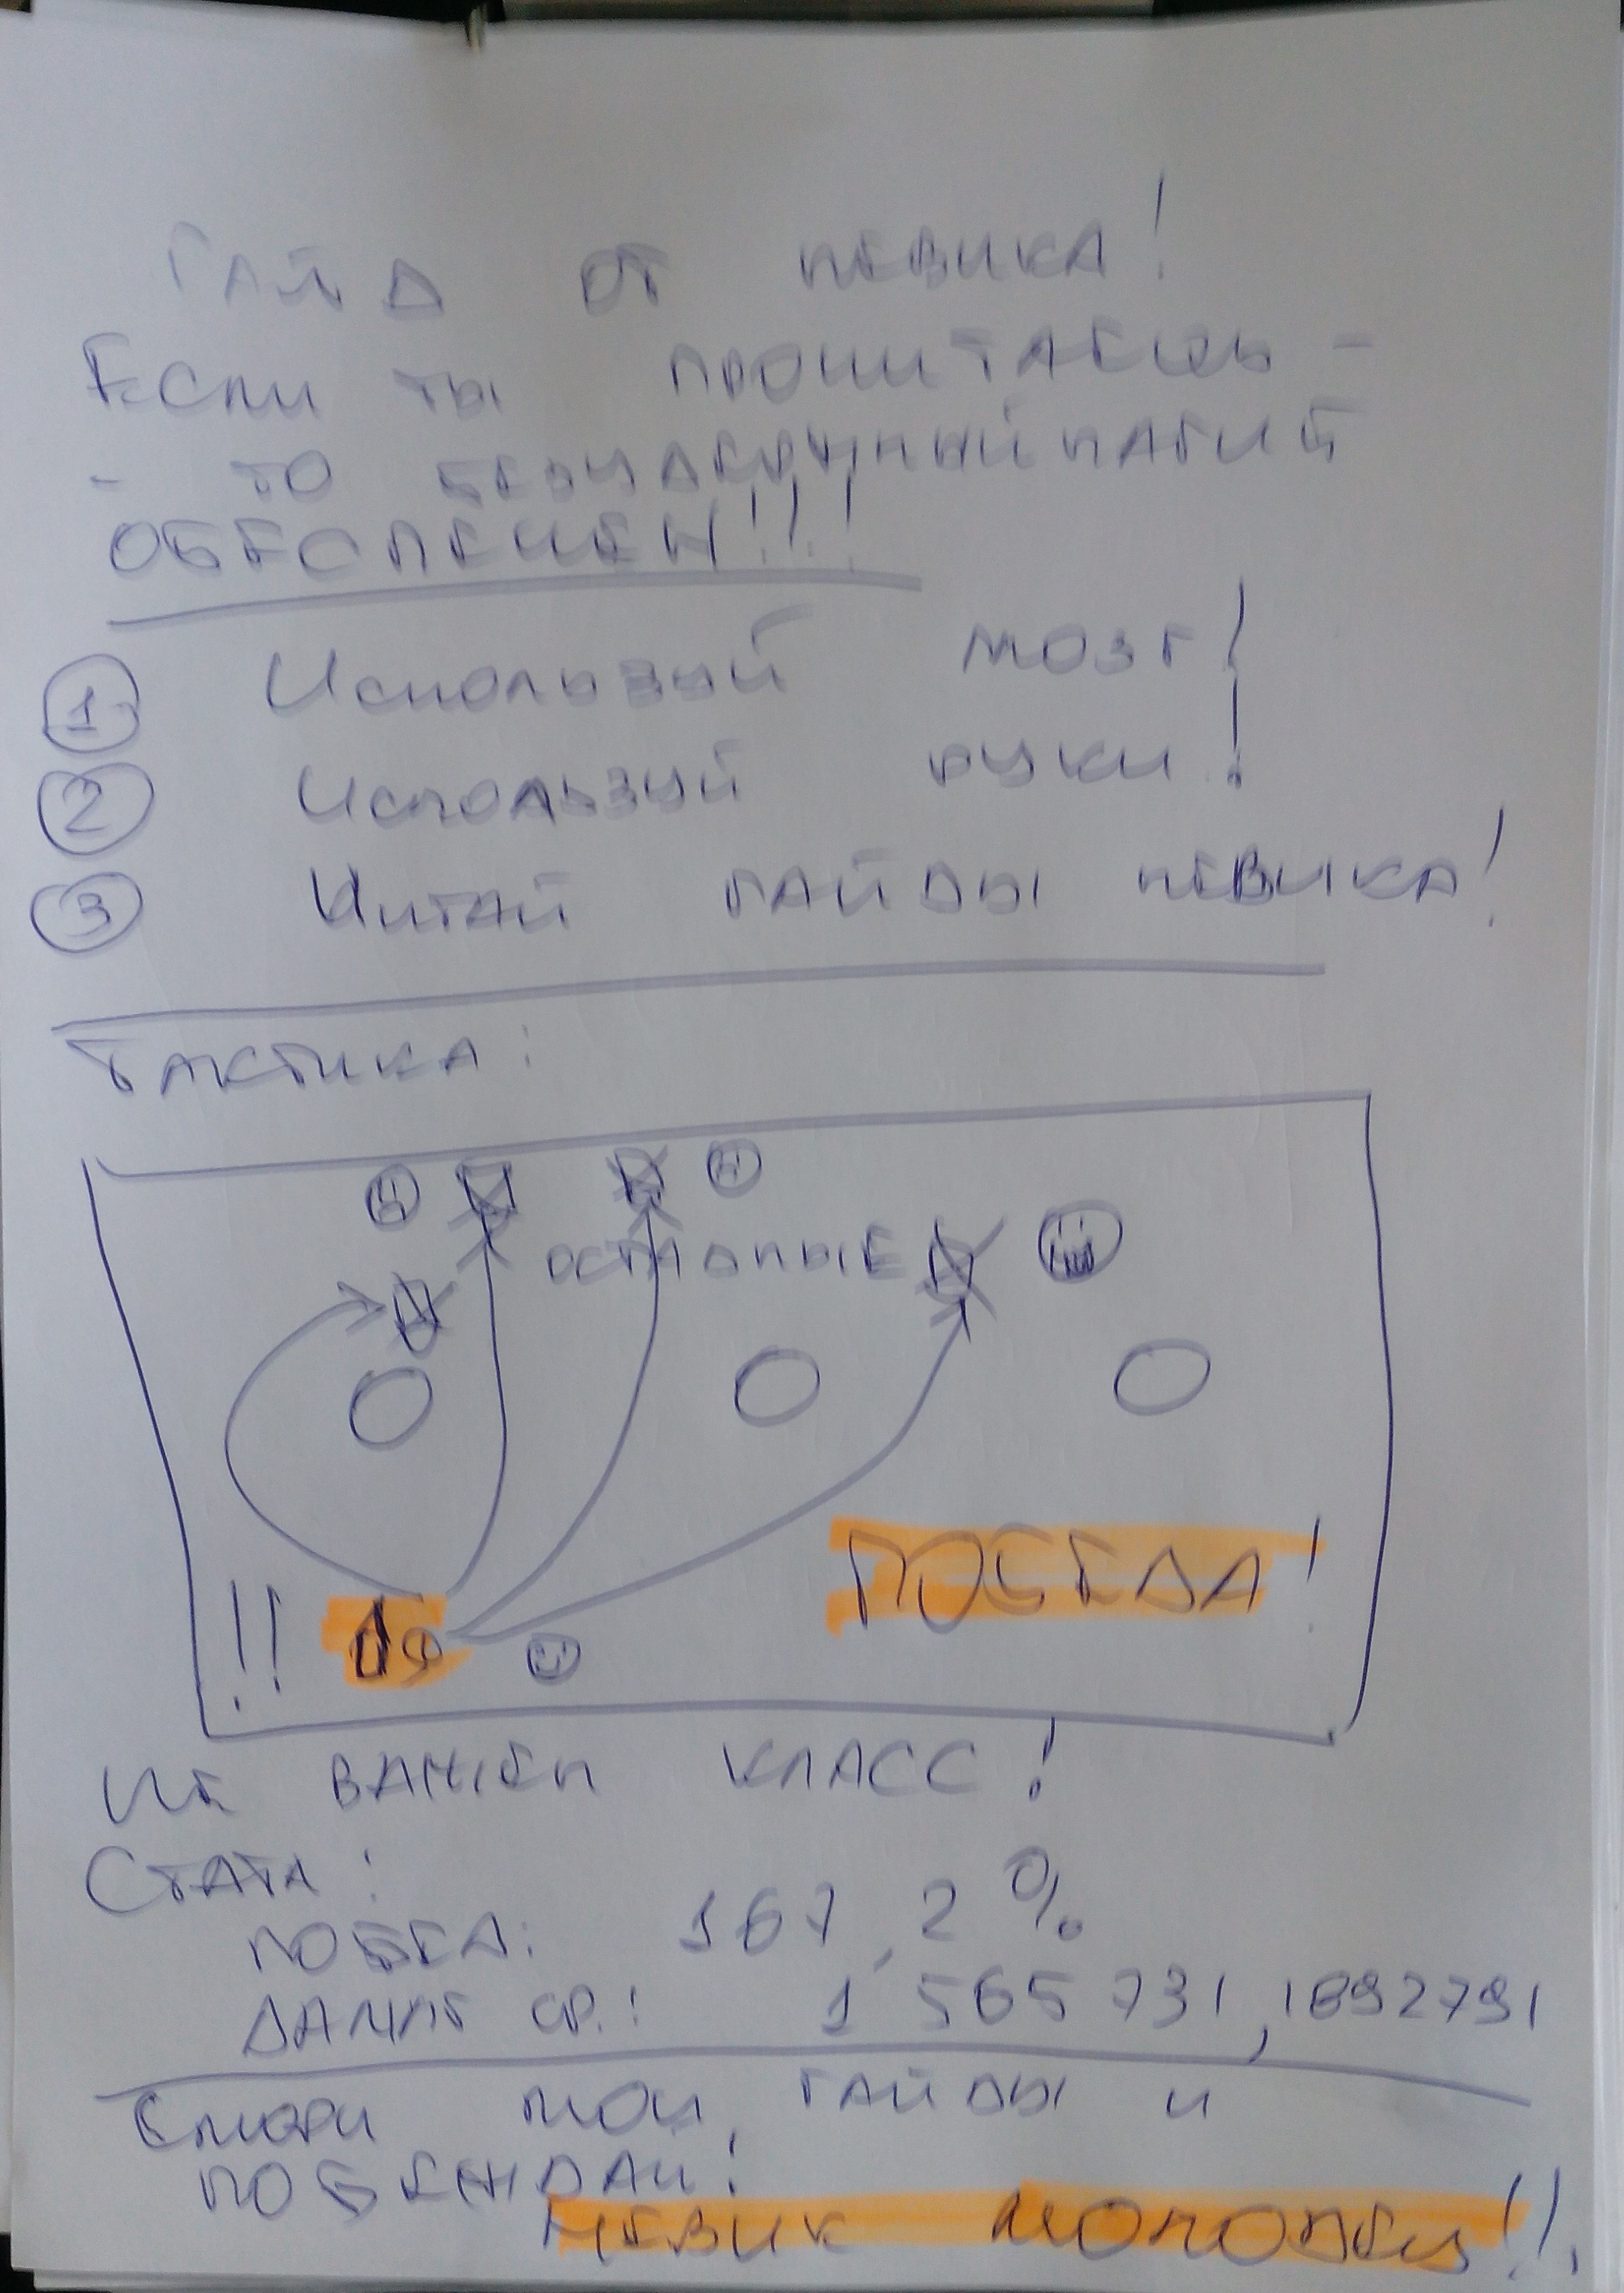 Гайд от Невика!
Если ты прочитаешь -
- то безудержный нагиб
ОБЕСПЕЧЕН!!!
1 Используй мозг!
2 Используй руки!
3 Читай гайды Невика!
Тактика:
остальные
!! Я
ПОБЕДА!
Не важен класс!
Стата:
побед: 167,2%
дамаг ср.: 1 565 731,1892791
Смотри мои гайды и
побеждай!
Невик молодец!!